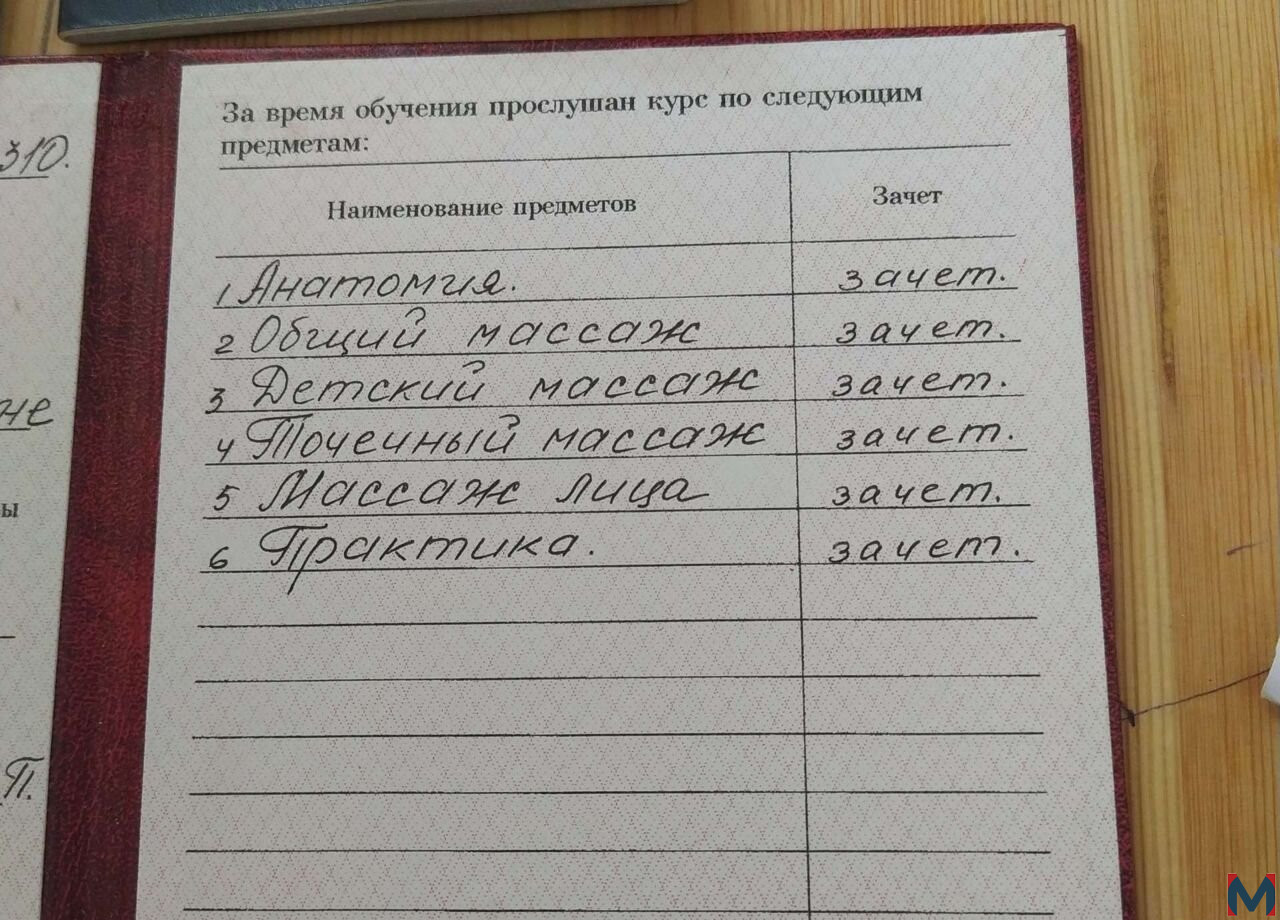 310.
не
ы
П.
За время обучения прослушан курс по следующим
предметам:
Наименование предметов Зачет
1 Анатомия. зачет.
2 Общий массаж зачет.
3 Детский массаж зачет.
4 Точечный массаж зачет.
5 Массаж лица зачет.
6 Практика. зачет.
M